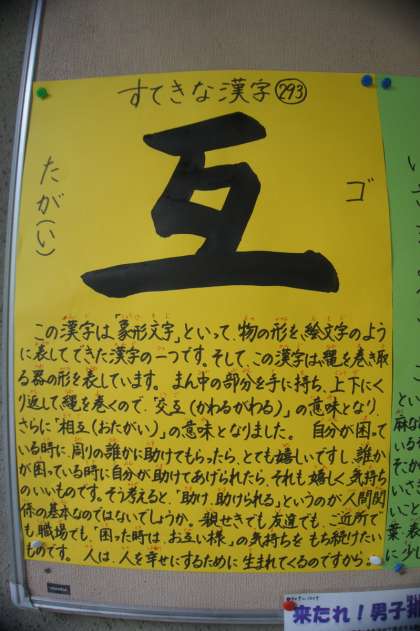 すてきな漢字293
互
たが(い)
ゴ
この漢字は、「象形文字」といって、物の形を、絵文字のよう
に表してできた漢字の一つです。そして、この漢字は、縄を巻き取
る器の形を表しています。まん中の部分を手に持ち、上下にく
り返して縄を巻くので、「交互(かわるがわる)」の意味となり、
さらに「相互(おたがい)」の意味となりました。 自分が困って
いる時に、周りの誰かに助けてもらったら、とても嬉しいですし、誰か
が困っている時に自分が助けてあげられたら、それも嬉しく、気持ち
のいいものです。そう考えると、「助け、助けられる」というのが人間関
係の基本なのではないでしょうか。親せきでも友達でも、ご近所で
も職場でも、「困った時は、お互い様」の気持ちをもち続けたい
ものです。人は、人を幸せにするために生まれてくるのですから。
来たれ!男子